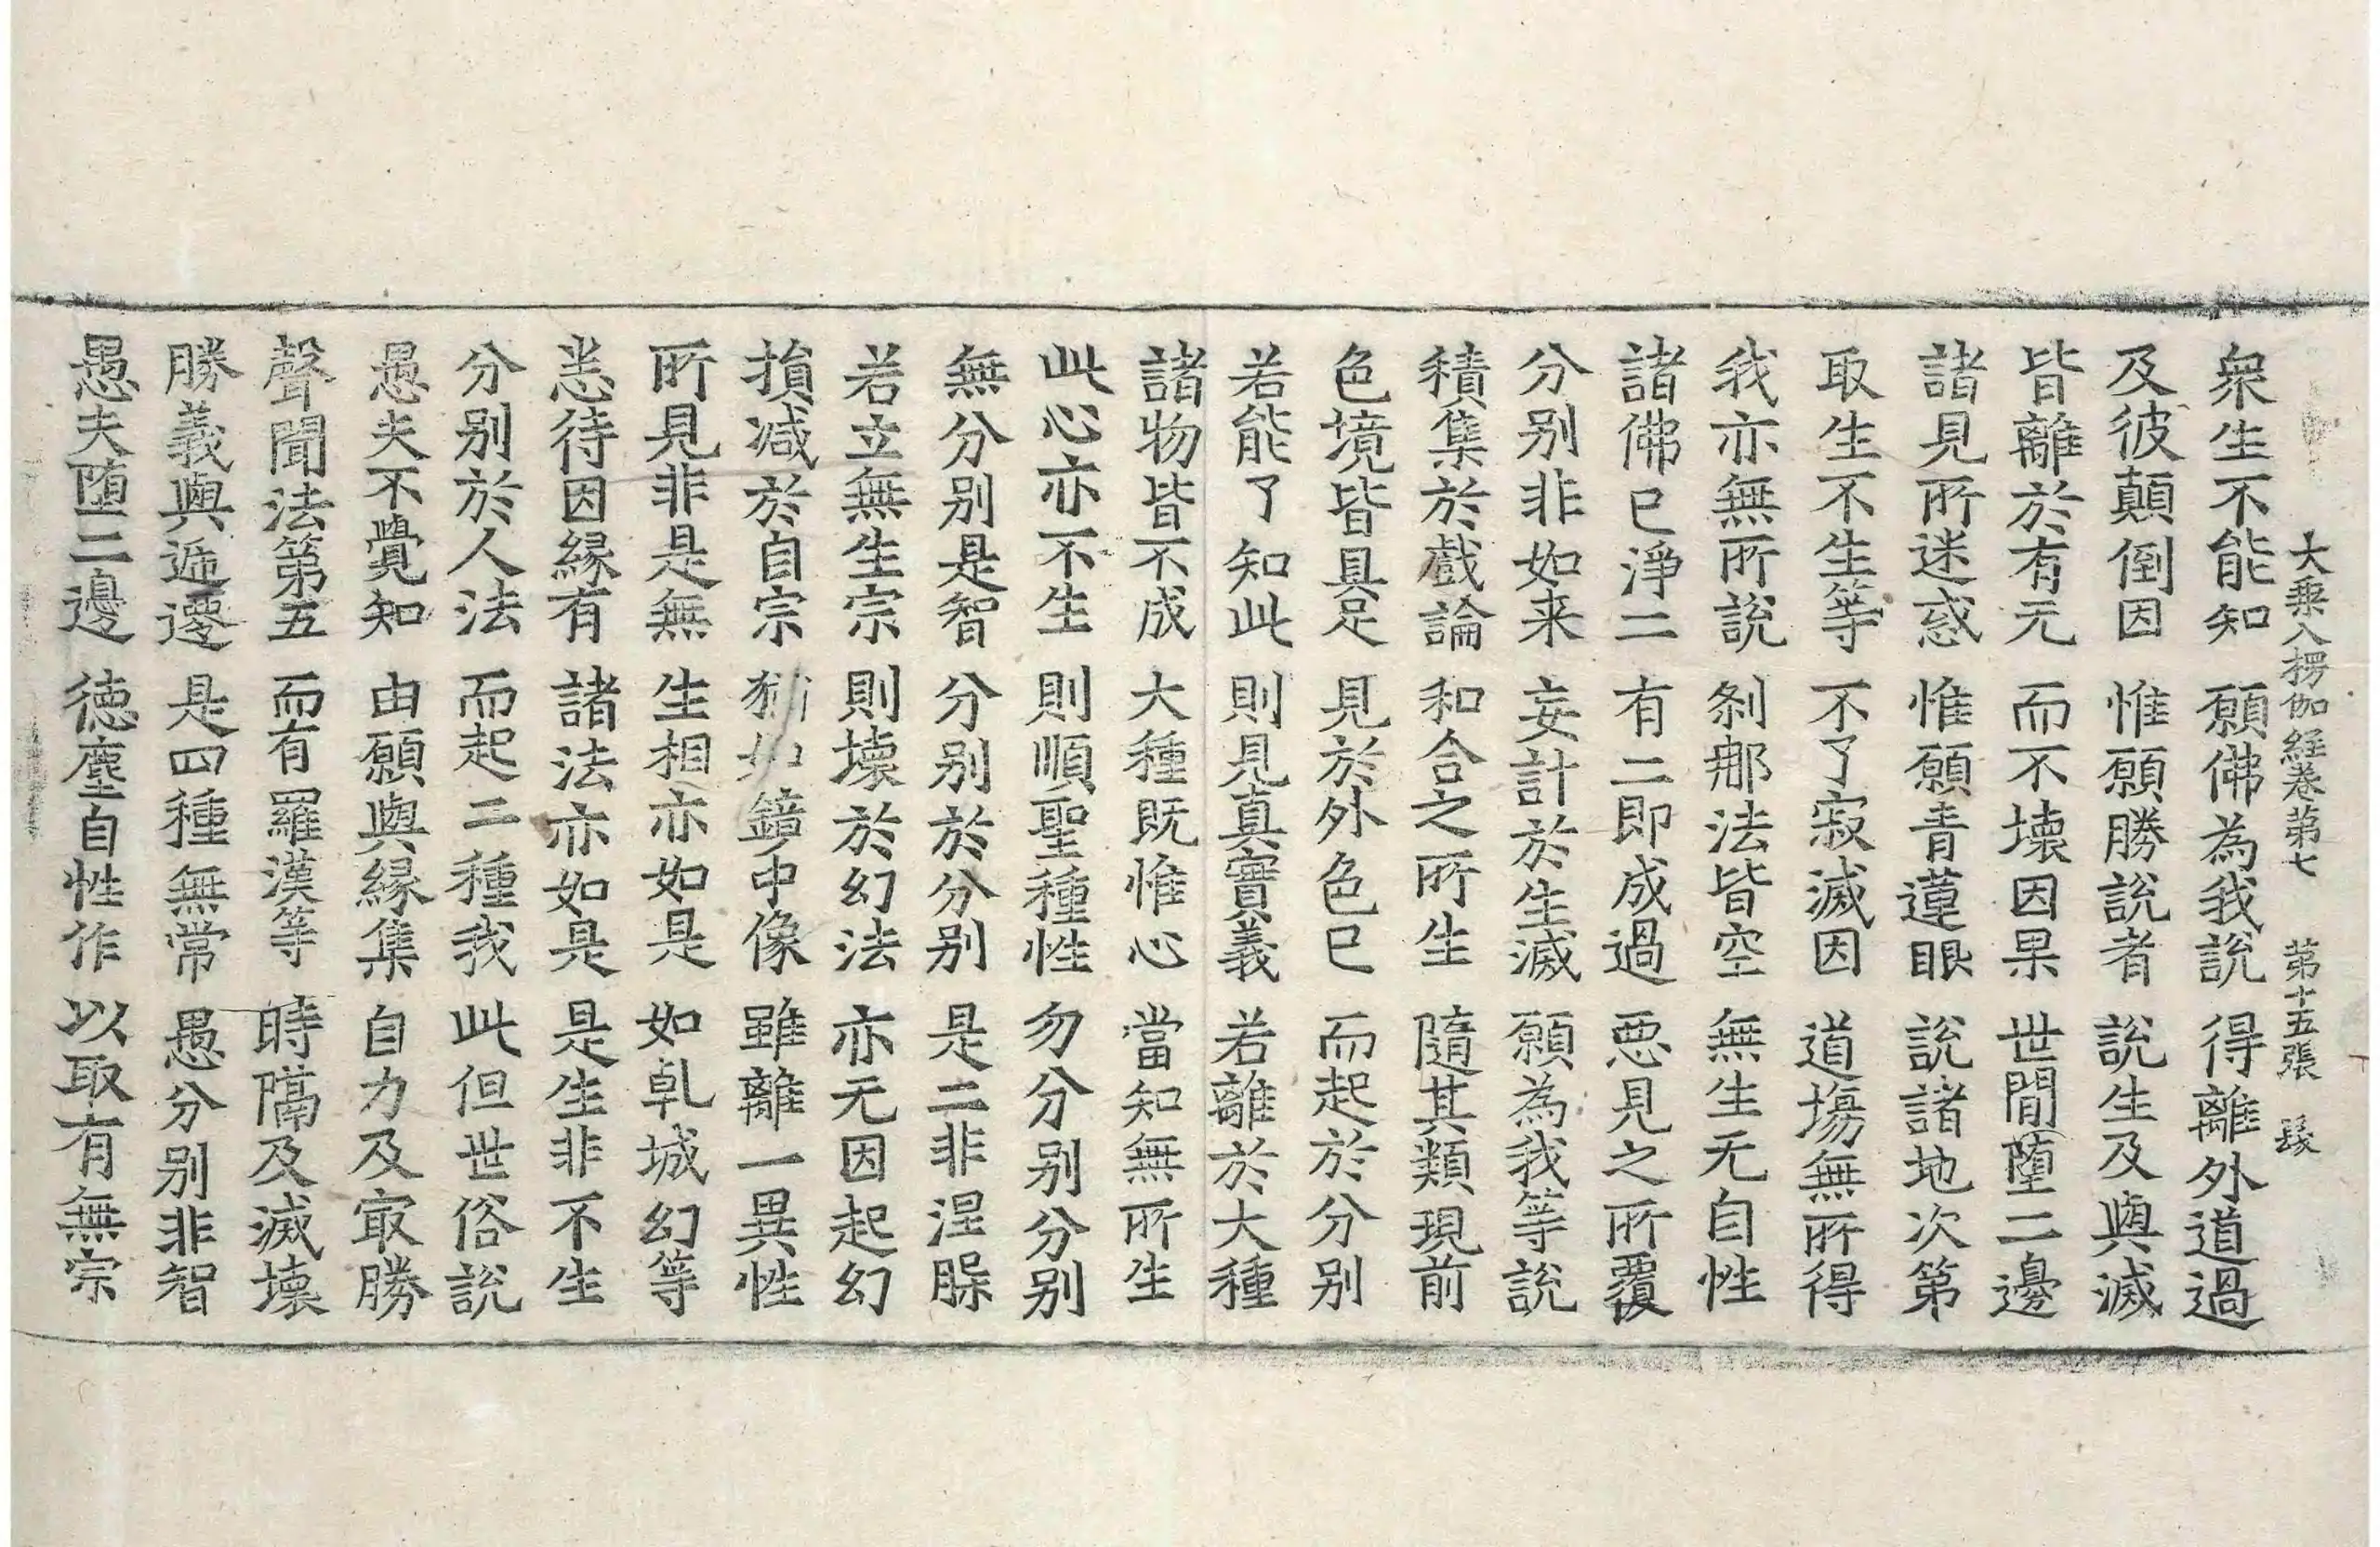 大乗入楞伽経卷第七 第十五張 髪
衆生不能知 願佛為我說 得離外道過
及彼顛倒因 惟願勝說者 說生及與滅
皆離於有无 而不壞因果 世間墮二邊
諸見所迷惑 惟願青蓮眼 說諸地次第
取生不生等 不了寂滅因 道場無所得
我亦無所說 剎那法皆空 無生无自性
諸佛已淨二 有二即成過 悪見之所覆
分别非如来 妄計於生滅 願為我等說
積集於戲論 和合之所生 隨其類現前
色境皆具足 見於外色已 而起於分别
若能了知此 則見真實義 若離於大種
諸物皆不成 大種既惟心 當知無所生
此心亦不生 則順聖種性 勿分别分别
無分别是智 分别於分别 是二非涅腺
若立無生宗 則壞於幻法 亦无因起幻
損减於自宗 猶如鏡中像 雖離一異性
所見非是無 生相亦如是 如乹城幻等
悉待因緣有 諸法亦如是 是生非不生
分别於人法 而起二種我 此但世俗說
愚夫不覺知 由願與緣集 自力及冣勝
聲聞法第五 而有羅漢等 時隔及滅壞
勝義與遞遷 是四種無常 愚分别非智
愚夫墮二邊 德塵自性作 以取有無宗